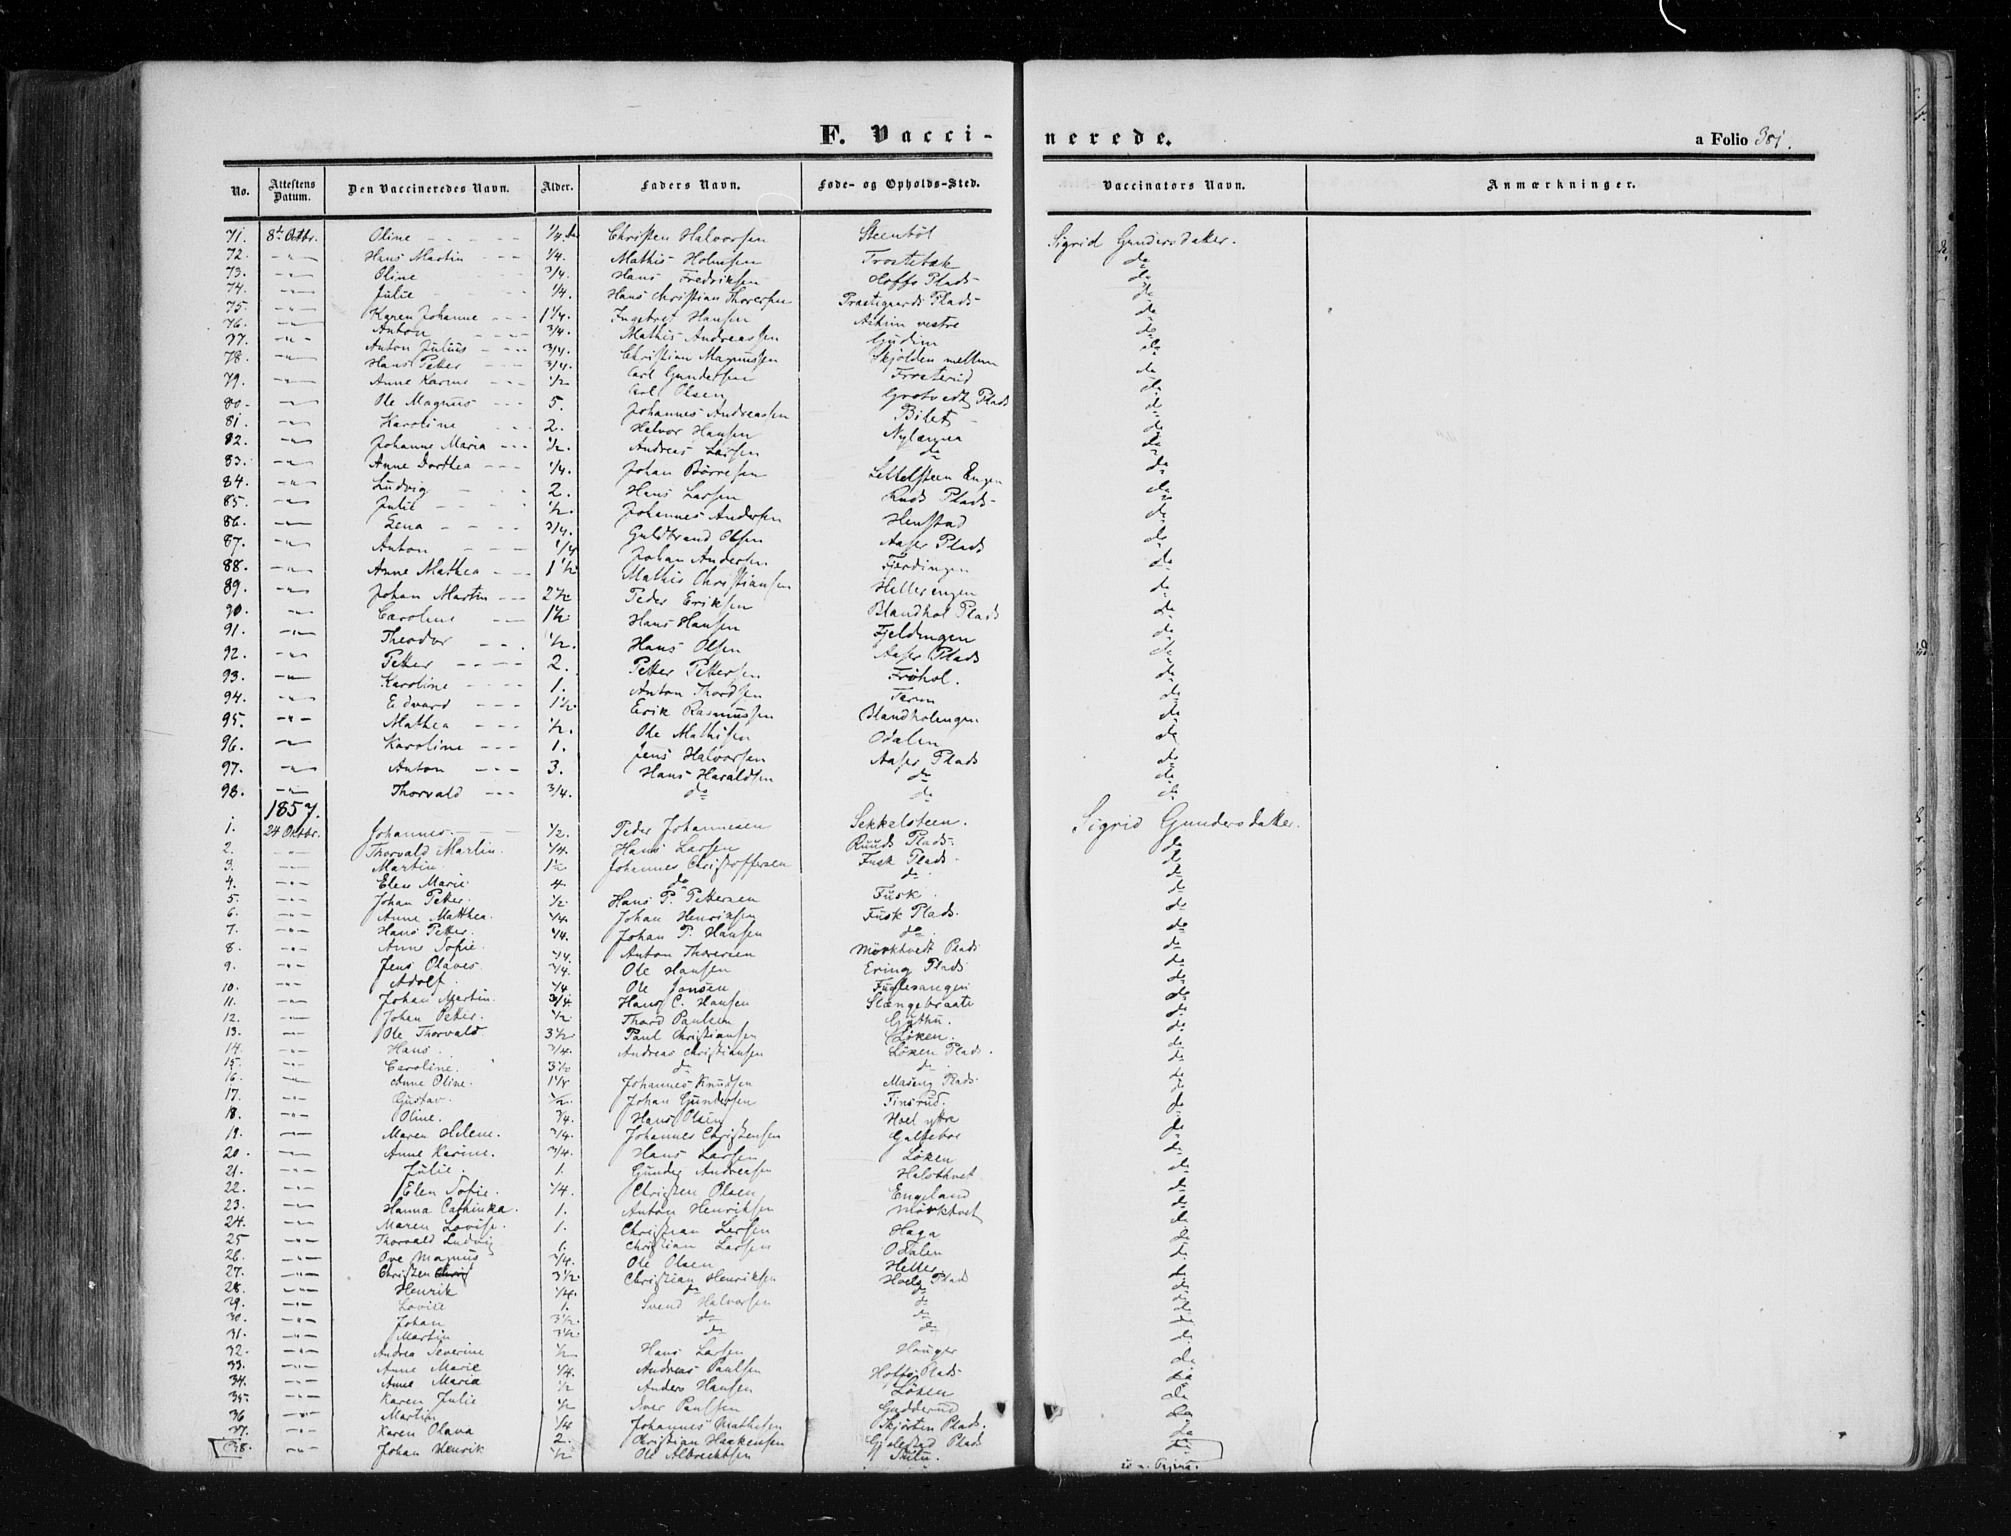 F. Vaccinerede.
a Folio 381.
No. Attestens Datum. Den Vaccineredes Navn. Alder. Faders Navn. Føde- og Opholds-Sted. Vaccinators Navn. Anmærkninger.
71. 8de Octbr. Oline 1/4 Christen Halvorsen Steenbøl Sigrid Gundersdatter.
72. -"- Hans Martin 1/4. Mathis Holmsen Trostebæk do
73. -"- Oline 3/4. Hans Fredriksen Hoffs Plads do
74. -"- Julie 1/4. Hans Christian Thoresen Præstegaards Plads do
75. -"- Karen Johanne 1 1/4. Ingebret Hansen Askim vestre do
76. -"- Anton 3/4. Mathis Andreassen Gudim do
77. -"- Anton Julius 3/4. Christian Magnussen Skjolden mellem do
78. -"- Hans Petter 3/4. Carl Gundersen Frosterud do
79. -"- Anne Karine 1/2 Carl Olsen Grotvedt Plads do
80. -"- Ole Magnus 5. Johannes Andreassen Bilet do
81. -"- Karoline 2. Halvor Hansen do
82. -"- Johanne Maria 1/2. Andreas Larsen do do
83. -"- Anne Dorthea 1/4. Johan Børresen Settelsteen Engen do
84. -"- Ludvig 2. Hans Larsen Ruds Plads do
85. -"- Julie 1/2. Johannes Andersen Henstad do
86. -"- Lena 3/4. Guldbrand Olsen Aaser Plads do
87. -"- Anton 1/4 Johan Andersen Fierdingen do
88. -"- Anne Mathea 1 1/2 Mathis Christiansen Hellerengen do
89. -"- Johan Martin 2 1/2 Peder Eriksen Blandhol Plads do
90. -"- Caroline 1 1/2 Hans Hansen Fjeldengen do
91. -"- Theodor 1/2. Hans Olsen Aaser Plads do
92. -"- Petter 2. Petter Pettersen Frøhol. do
93. -"- Karoline 1. Anton Thordsen do
94. -"- Edvard 1 1/2. Erik Rasmussen Blandholengen do
95. -"- Mathea 1/2. Ole Mathisen Odalen do
96. -"- Karoline 1. Jens Halvorsen Aaser Plads do
97. -"- Anton 3. Hans Haraldsen do do
98. -"- Thorvald 3/4. do do do
1857.
1. 24 Oktbr. Johannes. 1/2. Peder Johannesen Sekkelsteen. Sigrid Gundersdatter.
2. -"- Thorvald Martin. 1/4. Hans Larsen Ruuds Plads. do
3. -"- Martin 1 1/2 Johannes Christoffersen Fusk Plads. do
4. -"- Elen Marie 4 do do do
5. -"- Johan Petter. 1/2. Hans P. Pettersen Fusk. do
6. -"- Anne Matthea. 1/4. Johan Henriksen Fusk Plads. do
7. -"- Hans Petter. 1/4. Johan P. Hansen do do
8. -"- Anne Sofie. 1/4. Anton Thoresen Mörktvedt Plads do
9. -"- Jens Olaves. 3/4. Ole Hansen Ering Plads do
10. -"- Adolf. 1/4 Ole Jonsen Fuglesangen do
11. -"- Johan Martin. 3/4 Hans C. Hansen Slængebraate do
12. -"- Johan Petter. 1/2 Thord Paulsen do
13. -"- Ole Thorvald. 3 1/2. Paul Christiansen Löken. do
14. -"- Hans. 3/4. Andreas Christiansen Löken Plads. do
15. -"- Caroline. 3 1/2 do do do
16. -"- Anne Oline. 1 1/4 Johannes Knudsen Maseng Plads do
17. -"- Gustav. 1/2. Johan Gundersen Finsrud. do
18. -"- Oline. 3/4. Hans Olsen Hoel yttre do
19. -"- Maren Helene. 3/4. Johannes Christensen Galtebøl do
20. -"- Anne Karine. 3/4. Hans Larsen Löken do
21. -"- Julie. 1. Gunder Andreasen Halsthvet do
22. -"- Elen Sofie. 1/4. Christen Olsen Engeland do
23. -"- Hanna Cathinka. 1. Anton Henriksen Mörkhvet do
24. -"- Maren Lovise. 1. Christian Larsen Haga do
25 -"- Thorvald Ludvig 1. Christian Larsen Odalen do
26. -"- Ove Magnus 3/4. Ole Olsen Heller do
27. -"- Christen 3 1/2 Christian Henriksen Hoels Plads do
28. -"- Henrik 1/4. do do do
29. -"- Lovise 1. Svend Halvorsen do do
30. -"- Johan 3 1/2 do do do
31. -"- Martin 3 1/2. do do do
32. -"- Andrea Severine 1/2 Hans Larsen Hauger do
33. -"- Anne Marie 1/4. Andreas Paulsen Hoffs Plads do
34. -"- Anne Maria 1/2 Anders Hansen Löken do
35. -"- Karen Julie 1/2 Iver Paulsen Gudderud do
36 -"- Martin 1/4 Johannes Mathesen Skjorten Plads. do
37. -"- Karen Olava 2. Christian Haakensen Gjølstad Plads do
38. -"- Johan Henrik 1/2 Ole Albrechtsen Skilu. do